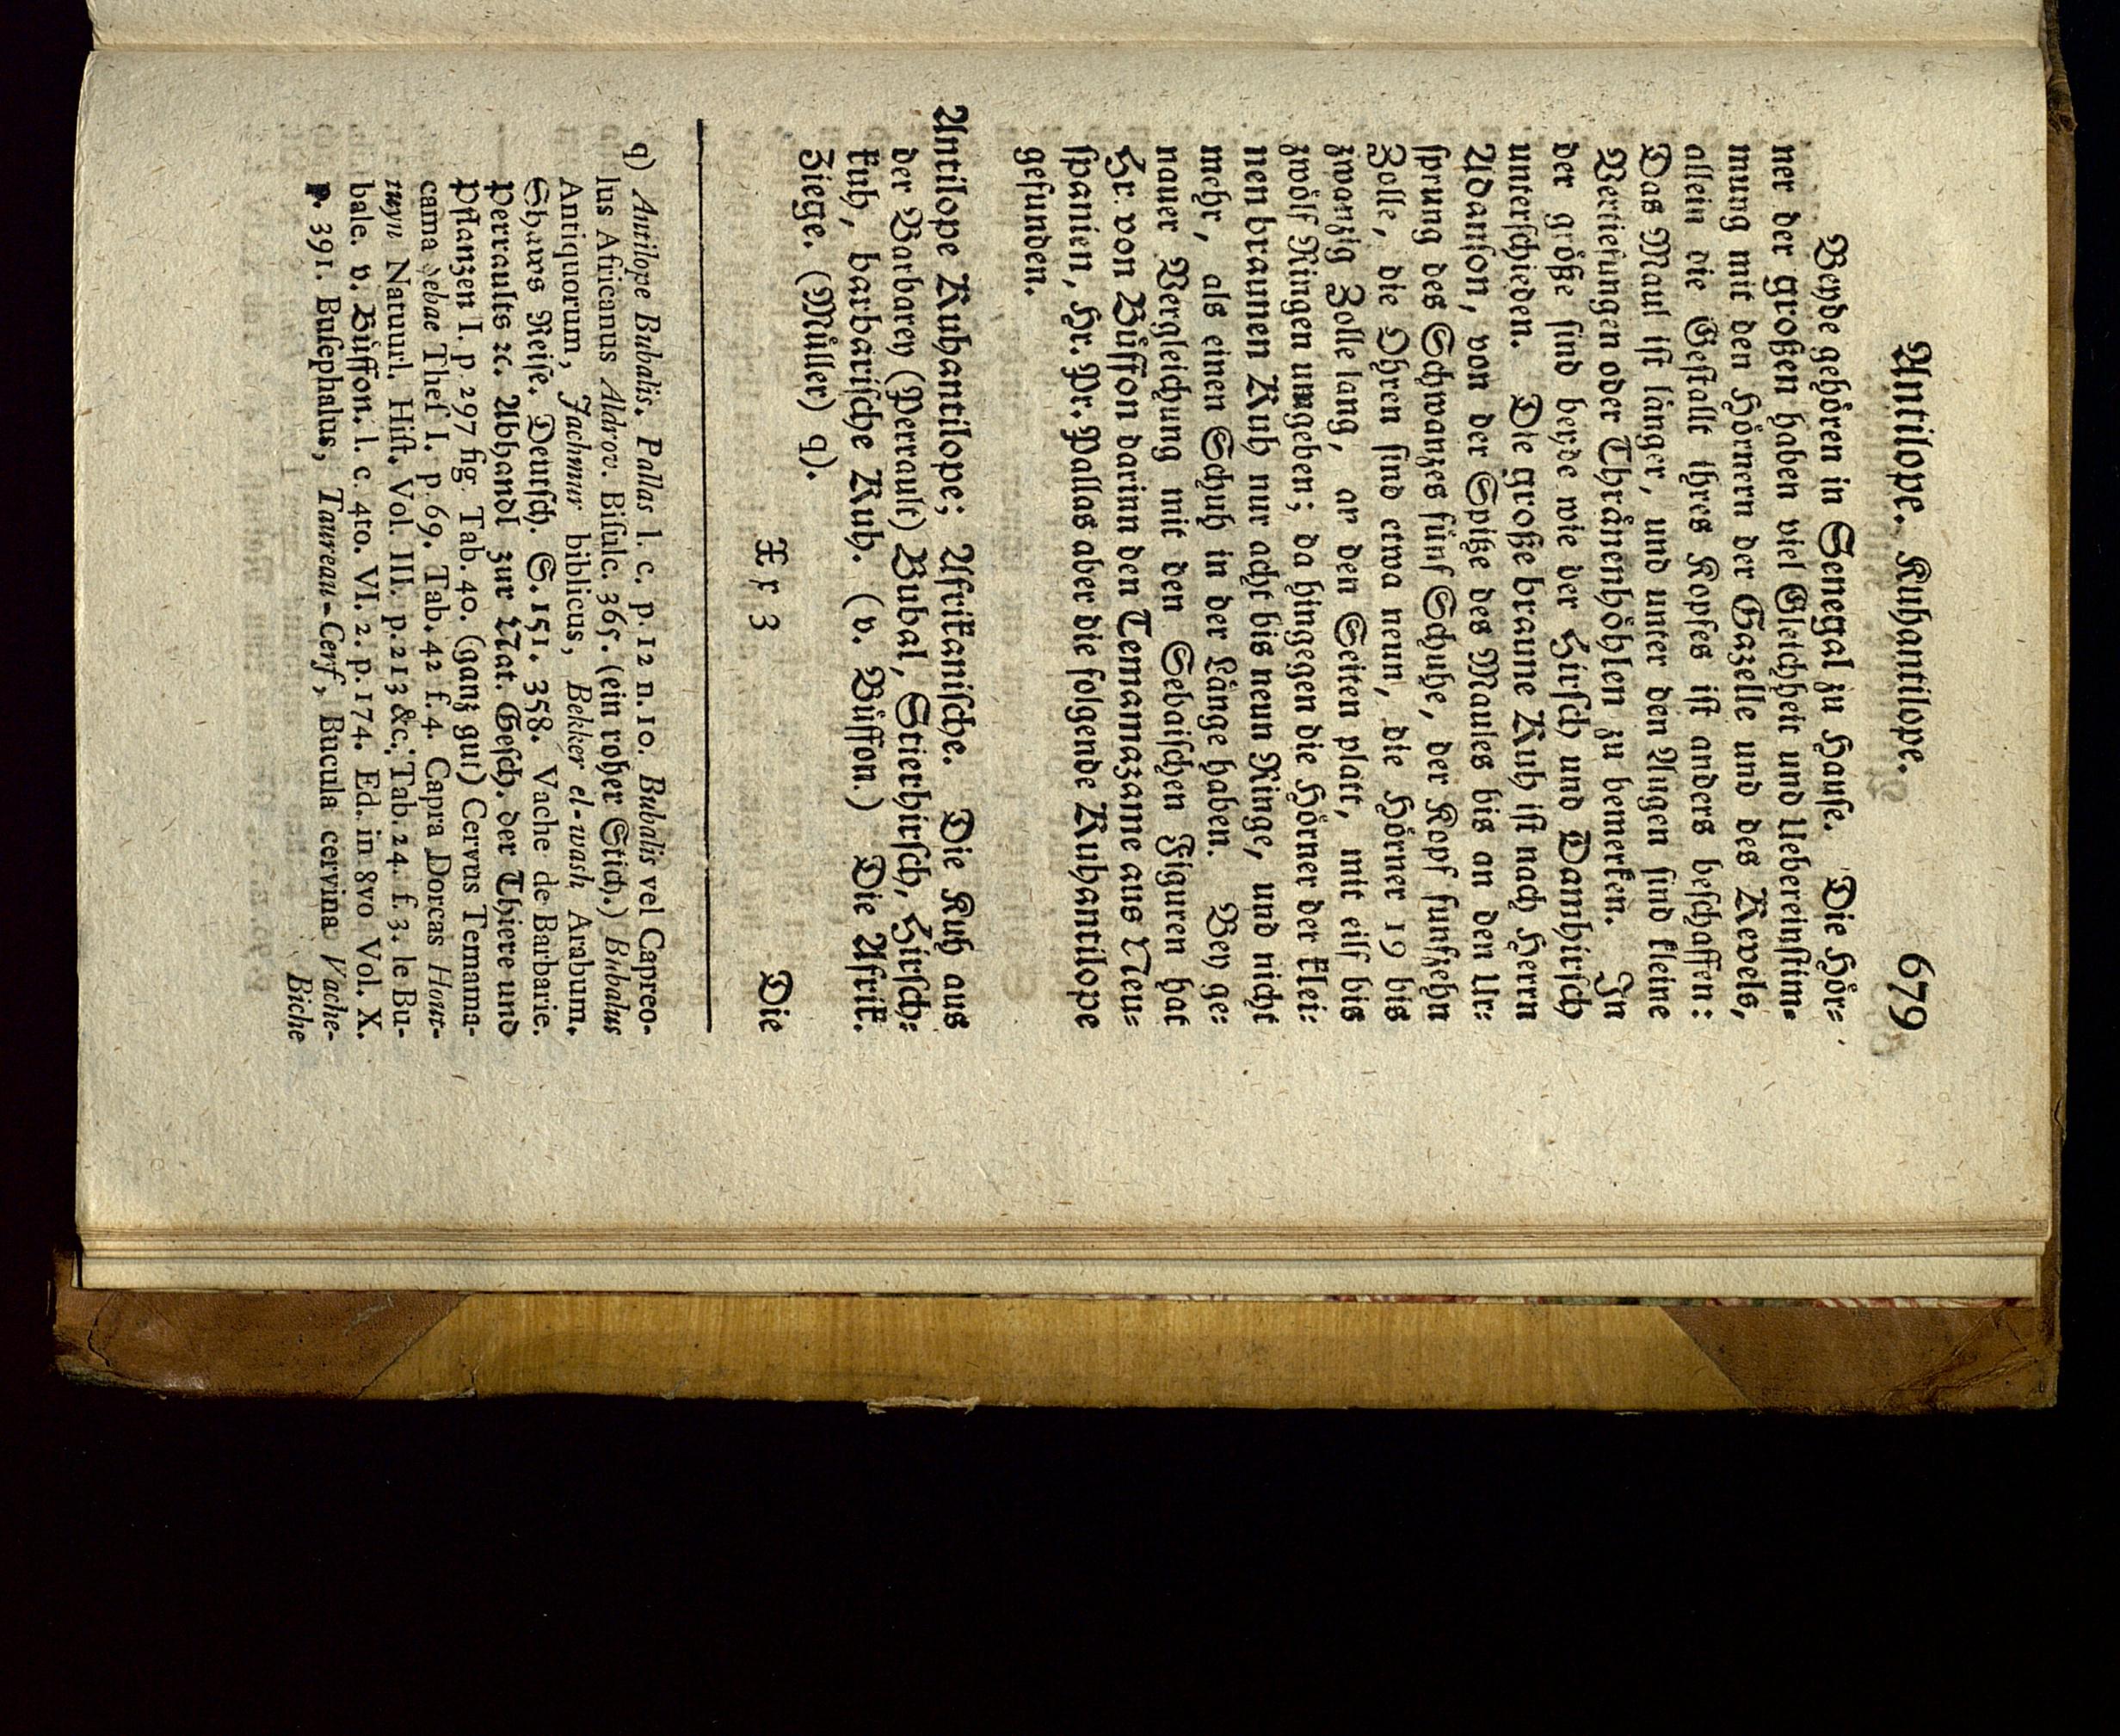 Antilope. Kuhantilope. 679
Beyde gehören in Senegal zu Hause. Die Hör-
ner der großen haben viel Gleichheit und Uebereinstim-
mung mit den Hörnern der Gazelle und des Kevels,
allein die Gestallt ihres Kopfes ist anders beschaffen:
Das Maul ist länger, und unter den Augen sind kleine
Vertiefungen oder Thränenhöhlen zu bemerken. In
der größe sind beyde wie der Hirsch und Damhirsch
unterschieden. Die große braune Kuh ist nach Herrn
Adanson, von der Spitze des Maules bis an den Ur-
sprung des Schwanzes fünf Schuhe, der Kopf funfzehn
Zolle, die Ohren sind etwa neun, die Hörner 19 bis
zwanzig Zolle lang, an den Seiten platt, mit eilf bis
zwölf Ringen umgeben; da hingegen die Hörner der klei-
nen braunen Kuh nur acht bis neun Ringe, und nicht
mehr, als einen Schuh in der Länge haben. Bey ge-
nauer Vergleichung mit den Sebaischen Figuren hat
Hr. von Büffon darinn den Temamazame aus Neu-
spanien, Hr. Pr. Pallas aber die folgende Kuhantilope
gefunden.
Antilope Kuhantilope; Afrikanische. Die Kuh aus
der Barbarey (Perrault) Bubal, Stierhirsch, Hirsch-
kuh, barbarische Kuh. (v. Büffon.) Die Afrik.
Ziege. (Müller) q).
Xx 3 Die
q) Antilope Bubalis. Pallas l. c. p. 12 n. 10. Bubalis vel Capreo-
lus Africanus Aldrov. Bisulc. 365. (ein roher Stich.) Bubalus
Antiquorum, Jachmur biblicus, Bekker el-wash Arabum.
Shaws Reise. Deutsch. S. 151. 358. Vache de Barbarie.
Perraults ꝛc. Abhandl zur Nat. Gesch. der Thiere und
Pflanzen I. p 297 fig. Tab. 40. (ganz gut) Cervus Temama-
cama Sebae Thes I. p 69. Tab. 42 f. 4. Capra Dorcas Hout-
tuyn Natuurl. Hist. Vol. III. p. 213 &c. Tab. 24. f. 3. le Bu-
bale. v. Büffon. l. c. 4to. VI. 2. p. 174. Ed. in 8vo Vol. X.
p. 391. Busephalus, Taureau-Cerf, Bucula cervina Vache-
Biche